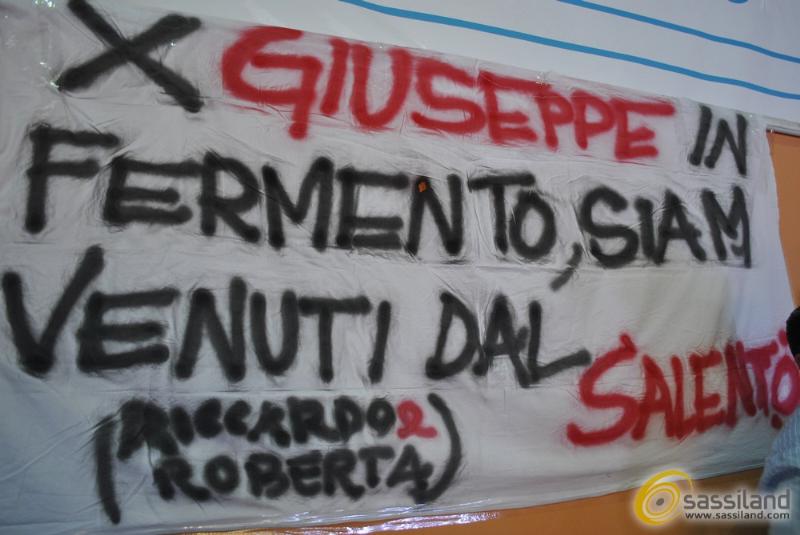 X GIUSEPPE IN
FERMENTO, SIAM
VENUTI DAL SALENTO
(RICCARDO e
ROBERTA)
sassiland
www.sassiland.com